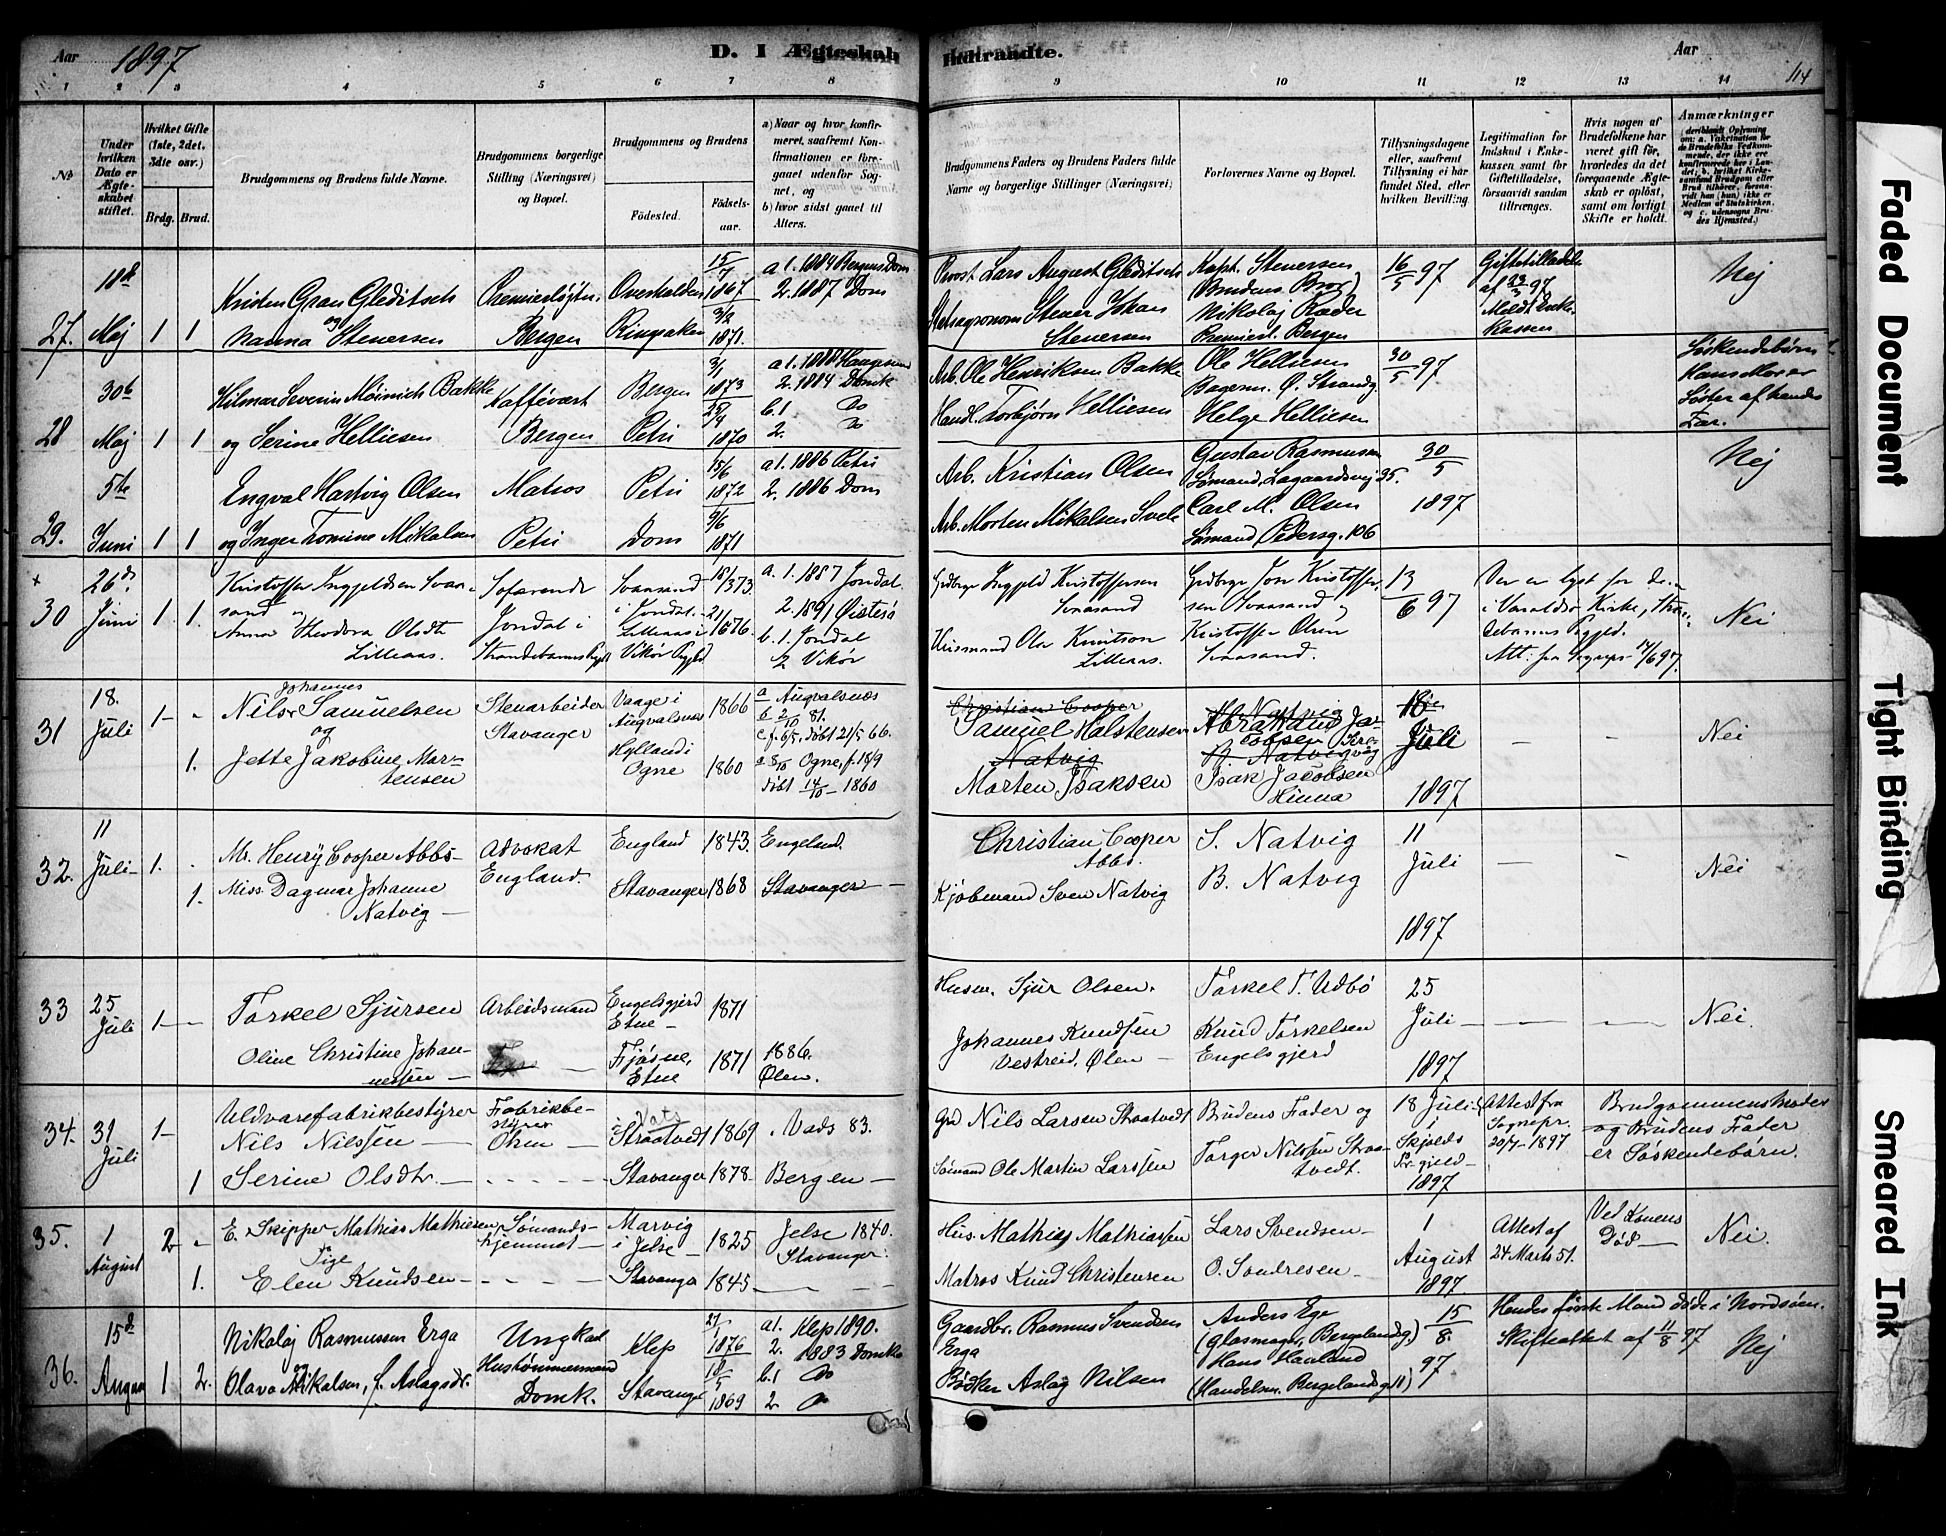 Aar 1897
D. I Ægteskab
Indtrandte.
Aar
114
1 2 3 4 5 6 7 8
9 10 11 12 13 14
No
Under hvilken Dato er Ægteskabet stiftet.
Hvilket Gifte (1ste, 2det, 3die osv.)
Brdg. Brud.
Brudgommens og Brudens fulde Navne.
Brudgommens borgerlige Stilling (Næringsvei) og Bopæl.
Brudgommens og Brudens
Fødested.
Fødselsaar.
a) Naar og hvor konfirmeret, saafremt Konfirmationen er foregaaet udenfor Sognet, og
b) hvor sidst gaaet til Alters.
Brudgommens Faders og Brudens Faders fulde Navne og borgerlige Stillinger (Næringsvei)
Forlovernes Navne og Bopæl.
Tillysningsdagene eller, saafremt Tillysning ei har fundet Sted, efter hvilken Bevilling.
Legitimation for Indskud i Enkekassen samt for Giftetilladelse, forsaavidt saadan tiltrænges.
Hvis nogen af Brudefolkene har været gift før, hvorledes da det foregaaende Ægteskab er opløst, samt om lovligt Skifte er holdt.
Anmærkninger
27. 18d Maj 1 1
Kristen Gran Gleditsch
og
Nanna Stenersen
Premierløjtn.
Bergen
Overhalden
Ringsaker
15/7 1867
3/2 1871.
a 1. 1884 Bergens Dom
2. 1887 Dom
Provst Lars August Gleditsch
Stener Johan
Stenersen
Kapt. Stenersen
(Brudens Bror)
Nikolaj Ræder
Premierl. Bergen
16/5 97
Giftetilladelse
af 23/3 97
Meldt Enkekassen
Nej
28 30te Maj 1 1
Hilmar Severin Møinich Bakke
og Serine Helliesen
Kaffévært
Bergen
Bergen
Petri
3/1 1873
25/4 1870
a 1. 1888 Haugesund
2. 1884 Domk
b. 1 Do
2. Do
Arb. Ole Henriksen Bakke
Handl. Torbjørn Helliesen
Ole Helliesen
Bagerm. Ø. Strandg.
Helge Helliesen
30/5 97
Søskendebørn
Hans Mor er
Søster af hendes
Far.
29. 5te Juni 1 1
Engval Hartvig Olsen
og Inger Tomine Mikalsen
Matros
Petri
Petri
Dom
15/6 1872
9/6 1871
a 1. 1886 Petri
2. 1886 Dom
Arb. Kristian Olsen
Arb. Morten Mikalsen Svele
Gustav Rasmussen
Sømand, Lagaardsvej 35.
Carl M. Olsen
Sømand Pedersg. 106
30/5
1897
Nej
+
30 26d Juni 1. 1.
Kristoffer Ingjeldsen Svaasand
og
Anna Theodora Olsdtr
Lilleaas.
Sofarende
Jondal i
Strandebarms Prgjld
Svaasand
i Jondal.
Lilleaas i
Vikør Prgjld
18/3 73.
21/1 1876.
a. 1. 1887 Jondal.
2. 1891 Østesø
b. 1. Jondal
2 Vikør
Grdbrgr Ingjeld Kristoffersen
Svaasand
Huusmand Ola Knutson
Lilleaas.
Grdbrgr Jon Kristoffersen
Svaasand og
Kristoffer Olsen
Svaasand.
13/6 97
i Varaldsø Kirke, Strandebarms Prgjld.
14/6 97.
Nei
31 18. Juli 1- - 1.
Johannes
Nils Samuelsen
og
Jette Jakobine Mortensen
Stenarbeider
Stavanger
Vaage i
Augvalsnes
Hylland i
Ogne
1866
1860
a Augvalsnes
2/10 81.
f. 6/5, døbt 21/5 66.
a 8/10 Ogne, f. 18/9
døbt 14/10 - 1860
Christian Cooper
Samuel Halstensen
Natvig
Morten Isaksen
Natvig
B. Natvig
Isak Jacobsen
Hinna
18
Juli
1897
- -
Nei
32. 11 Juli- 1. - 1.
Mr. Henry Cooper Abbs-
Miss. Dagmar Johanne
Natvig -
Advokat
England.
England
Stavanger
1843.
1868
Engeland.
Stavanger -
Christian Cooper
Abbs.
Kjøbmand Sven Natvig
S. Natvig
B. Natvig
11
Juli
1897
- -
Nei
33 25 Juli 1- -
Torkel Sjursen
Oline Christine Johannessen -
Arbeidsmand
Engelsgjerd
Etne -
Fjøsne,
Etne
1871
1871
1886.
Ølen.
Husm. Sjur Olsen.
Johannes Knudsen
Vestreid, Ølen -
Torkel T. Udbø
Knud Torkelsen
Engelsgjerd
25
Juli -
1897
- -
Nei
34. 31 Juli 1- 1
Uldvarefabrikbestyrer
Nils Nilssen -
Serine Olsdtr. -
Fabrikbestyrer
Ølen -
i Vats
Straatvedt
Stavanger
1869
1878-
Vads 83.
Bergen -
Grd Nils Larsen Straatvedt
Sømand Ole Martin Larssen
Brudens Fader og
Torger Nilssen Straatvedt.
18 Juli
i
Skjolds
Prgjeld-
1897
Attest fra
Sognepr.
20/7 - 1897
Brudgommens Moder
og Brudens Fader
er Søskendebørn.
35. 1 August 2- - 1.
E. Skipper Mathias Mathiesen
Pige
Elen Knudsen -
Sømandshjemmet -
Marvig
i Jelse -
Stavanger
1825
1845-
Jelse 1840.
Stavanger.
Hus. Mathias Mathiassen
Matros Knud Christensen
Lars Svendsen -
O. Sondresen -
1
August
1897.
Attest af
24 Marts 51.
Ved Konens
Død -
Nei.
36. 15d August 1 2.
Nikolaj Rasmussen Erga
og
Olava Mikalsen, f. Aslagsdr.
Ungkarl
Hustømmermand
Domk.
Klep
Stavanger
27/1 1876
18/5 1869
a 1. Klep 1890.
2. 1883 Domk
b. 1 Do
2 Do
Gaardbr. Rasmus Svendsen
Erga
Bødker Aslag Nilsen
Anders Ege
(Glasmager, Bergelandg.)
Hans Haaland
(Handelsm. Bergelandsg 11)
15/8.
97
Hendes første Mand døde i Nordsøen.
Skifteattest af 11/8 97
Nej
Faded Document
Tight Binding
Smeared Ink